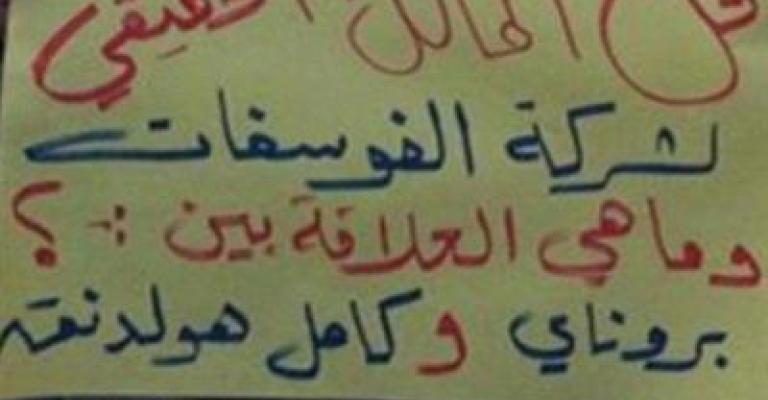 من المالك الحقيقي
لشركة الفوسفات
وما هي العلاقة بين :- ؟
بروناي وكامل هولدنغ